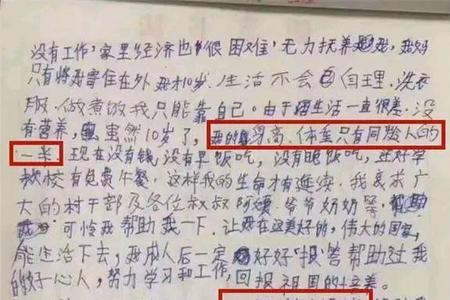 没有工作，家里经济也很困难，无力抚养我，我妈
只有将我寄住在外我才10岁，生活不会自理，洗衣
服，做煮饭我只能靠自己。由于生活一直很差，没
有营养，虽然10岁了，我的身高、体重只有同龄人的
一半，现在没有钱，没有早饭吃，没有晚饭吃，还好学
校有免费午餐，这样我的生命才有延续，我哀求广
大的村干部及各位叔叔阿姨、爷爷奶奶等
可怜我帮助我一下，让我在这美好的，伟大的国家，
能生活下去，我成人后一定好好报答帮助过我
的好心人，努力学习和工作，回报祖国的培养。